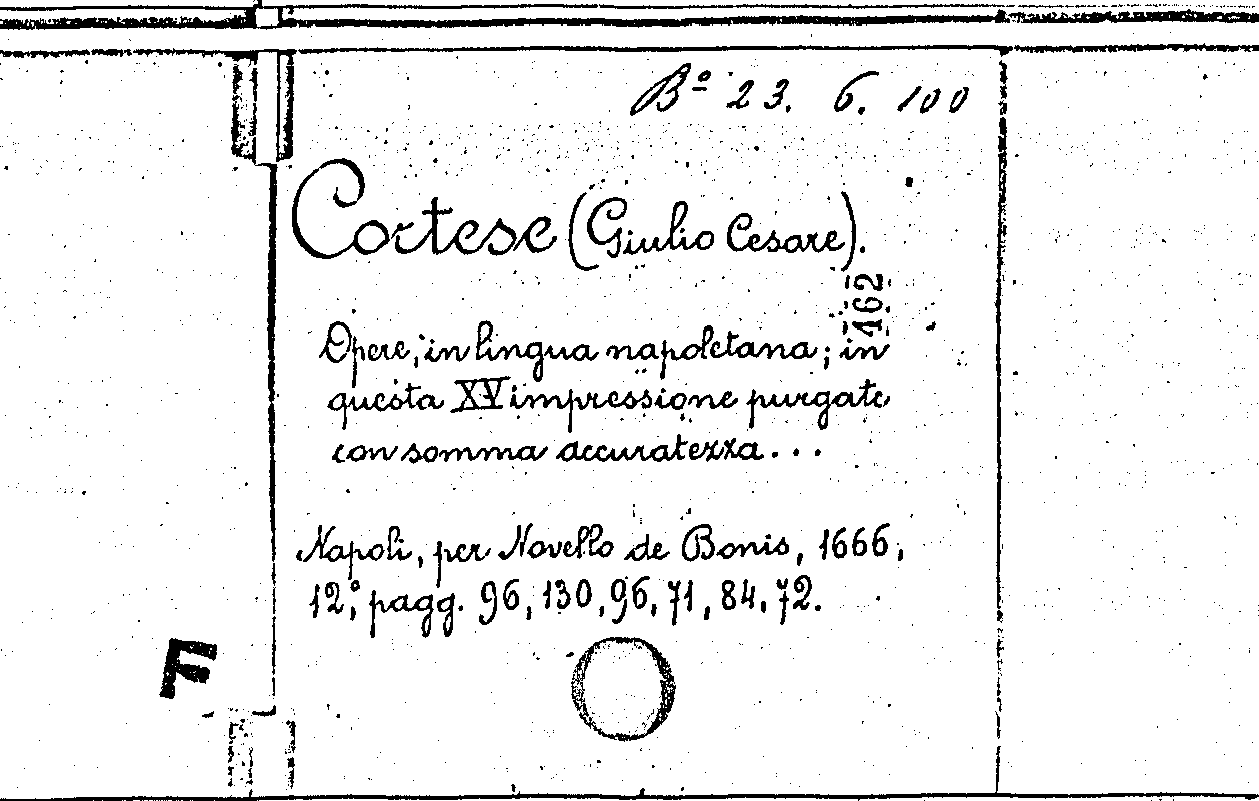 Bº 23. 6. 100
Cortese (Giulio Cesare).
462
Opere, in lingua napoletana; in
questa XV impressione purgate
con somma accuratezza...
Napoli, per Novello de Bonis, 1666,
12º, pagg. 96, 130, 96, 71, 84, 72.
F